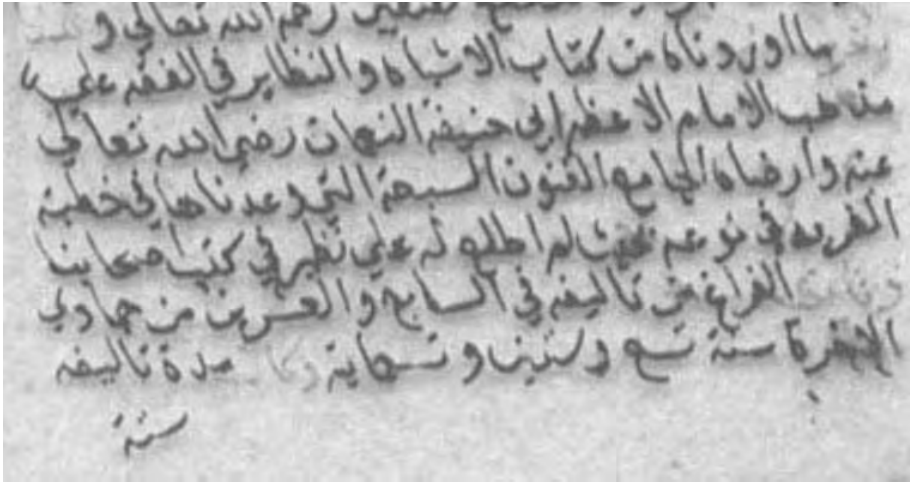 رحمه الله تعالى و
ما اوردناه من كتاب الاشباه والنظاير في الفقه علي
مذهب الامام الاعظم ابي حنيفة النعمان رضي الله تعالي
عنه وارضاه الجامع الفنون السبعة التي وعدنا ها في خطبة
الفريد في نوعه بحيث لم اطلع له علي نظير في كتب اصحابنا
الفراغ من تاليفه في السابع والعشرين من جمادي
الاخرة سنة تسع وستين وتسعماية وكا مدة تاليفه
ستة